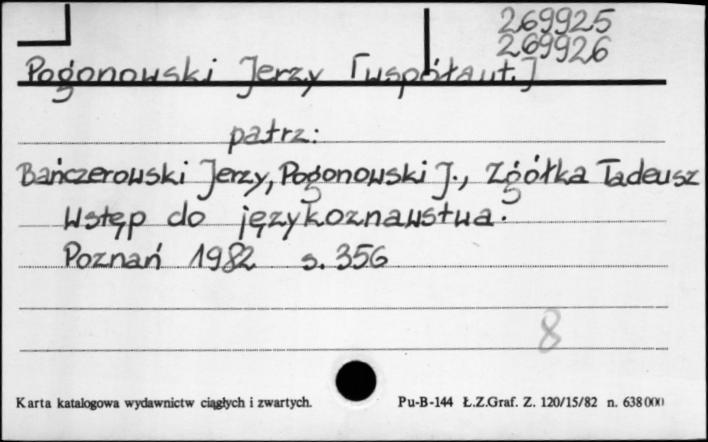 269925
269926
Pogonowski Jerzy [współaut.]
patrz:
Bańczerowski Jerzy, Pogonowski J., Zgółka Tadeusz
Wstęp do językoznawstwa.
Poznań 1982 s. 356
8
Karta katalogowa wydawnictw ciągłych i zwartych. Pu-B-144 Ł.Z.Graf. Z. 120/15/82 n. 638000